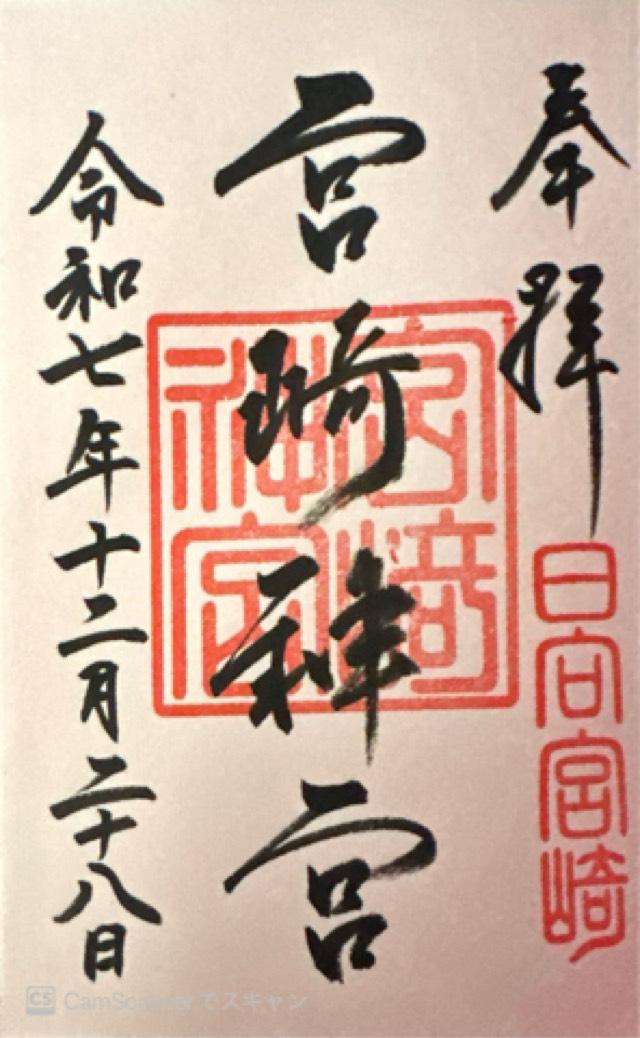 奉拝
日向宮崎
宮崎神宮
宮崎神宮
令和七年十二月二十八日
CS CamScanner でスキャン